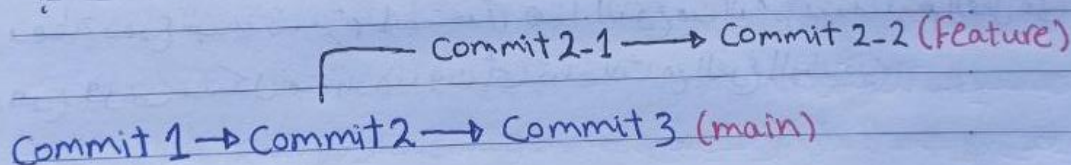 Commit 2-1 → Commit 2-2 (Feature)
Commit 1 → Commit 2 → Commit 3 (main)